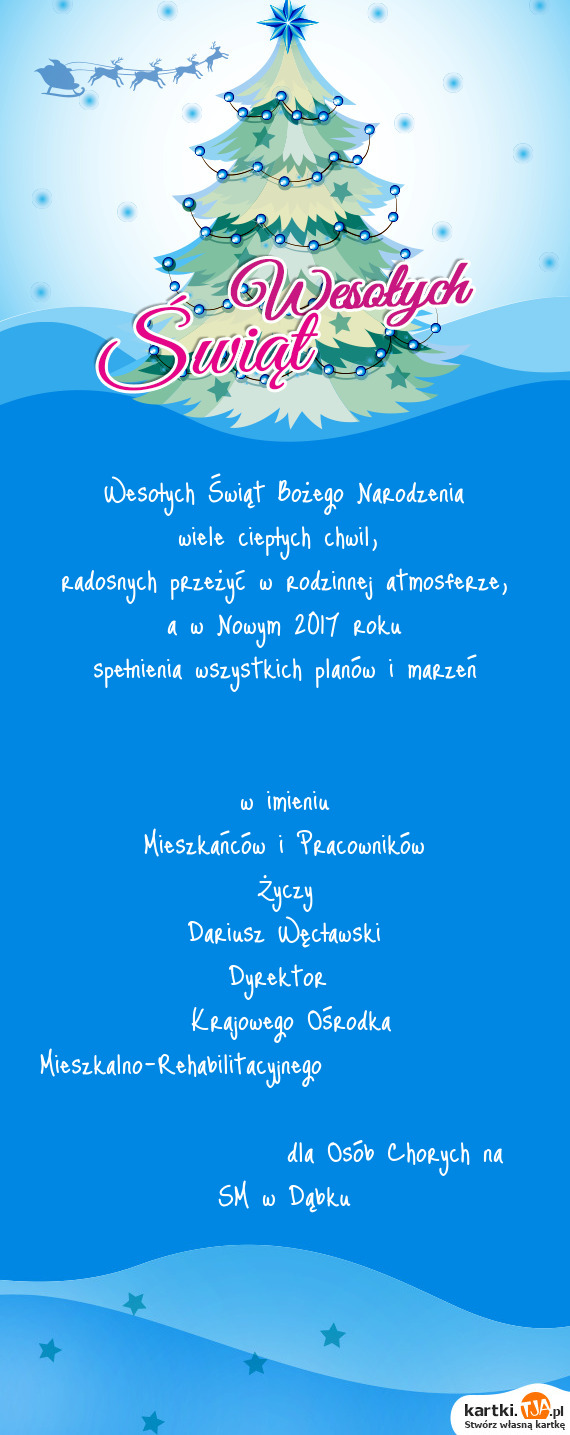 Wesołych
Świąt
Wesołych Świąt Bożego Narodzenia
wiele ciepłych chwil,
radosnych przeżyć w rodzinnej atmosferze,
a w Nowym 2017 roku
spełnienia wszystkich planów i marzeń
w imieniu
Mieszkańców i Pracowników
Życzy
Dariusz Węcławski
Dyrektor
Krajowego Ośrodka
Mieszkalno-Rehabilitacyjnego
dla Osób Chorych na
SM w Dąbku
kartki.TJA.pl
Stwórz własną kartkę